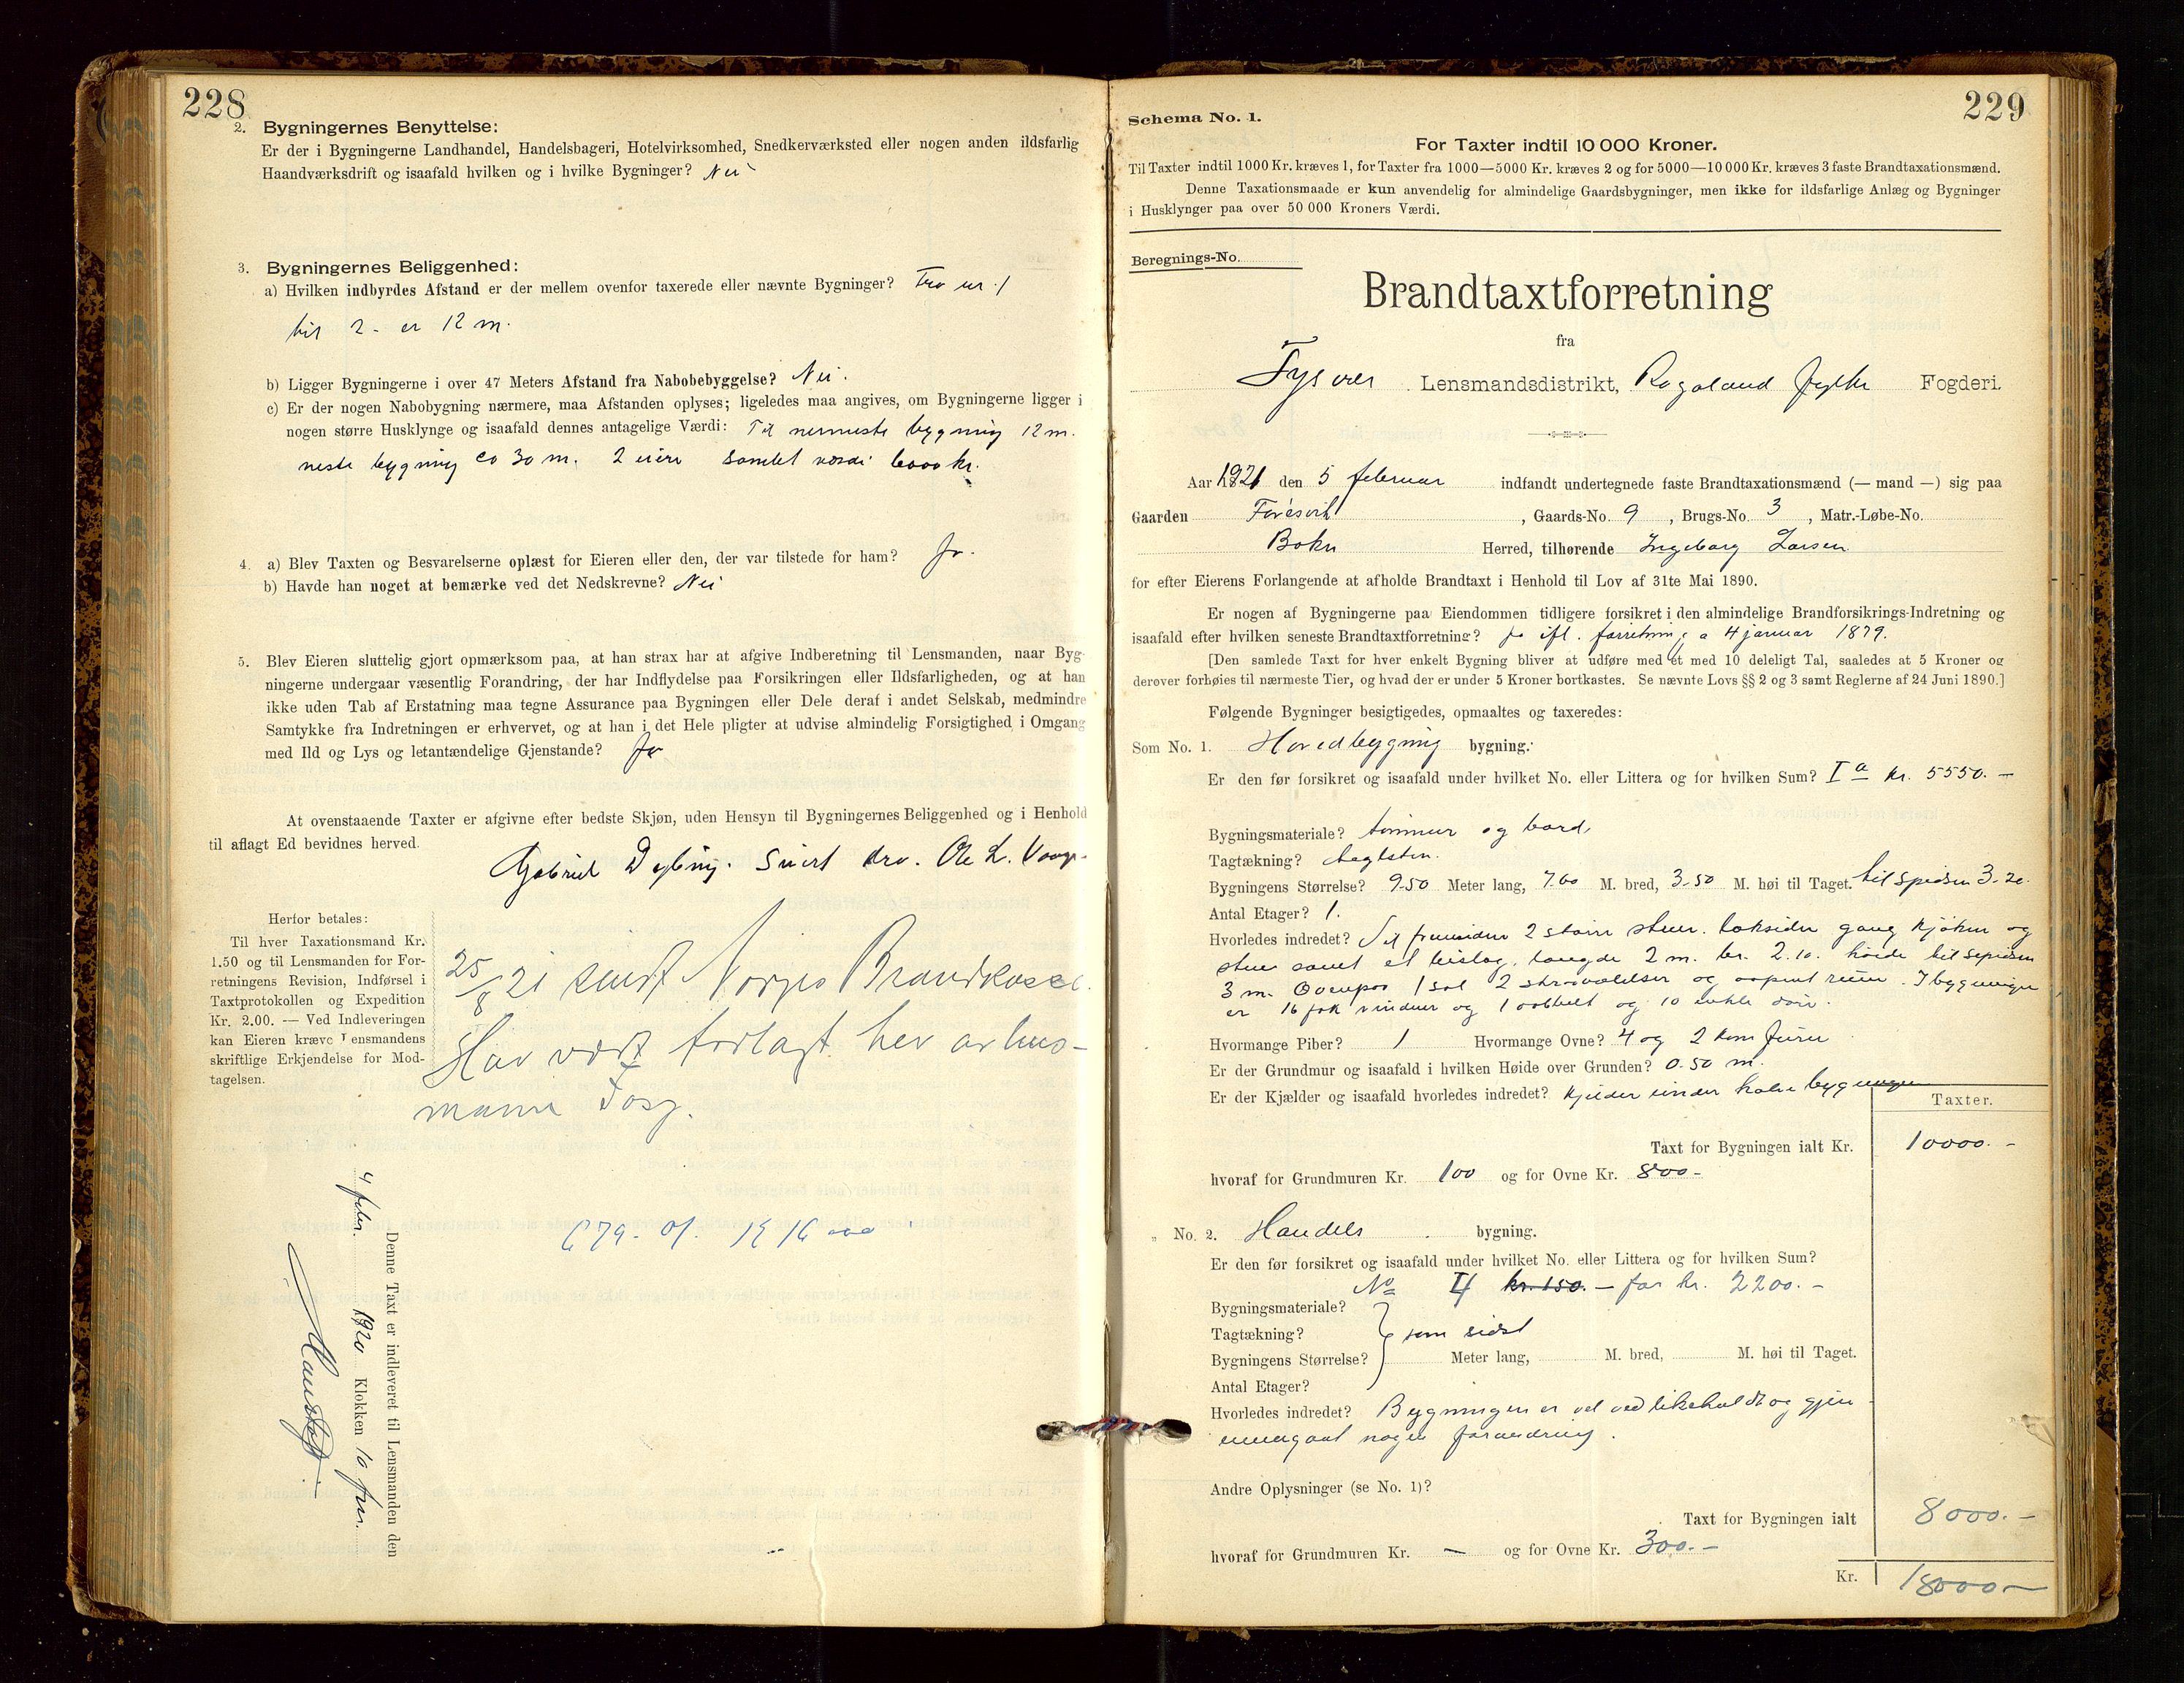 228
2. Bygningernes Benyttelse:
Er der i Bygningerne Landhandel, Handelsbageri, Hotelvirksomhed, Snedkerværksted eller nogen anden ildsfarlig
Haandværksdrift og isaafald hvilken og i hvilke Bygninger? Nei
3. Bygningernes Beliggenhed:
a) Hvilken indbyrdes Afstand er der mellem ovenfor taxerede eller nævnte Bygninger? Fra nr 1
til 2 - er 12 m.
b) Ligger Bygningerne i over 47 Meters Afstand fra Nabobebyggelse? Nei.
c) Er der nogen Nabobygning nærmere, maa Afstanden oplyses; ligeledes maa angives, om Bygningerne ligger i
nogen større Husklynge og isaafald dennes antagelige Værdi: Til nermeste bygning 12 m.
neste bygning ca 30 m. 2 eiere samlet værdi 6000 kr.
4. a) Blev Taxten og Besvarelserne oplæst for Eieren eller den, der var tilstede for ham? Ja.
b) Havde han noget at bemærke ved det Nedskrevne? Nei
5. Blev Eieren sluttelig gjort opmærksom paa, at han strax har at afgive Indberetning til Lensmanden, naar Byg-
ningerne undergaar væsentlig Forandring, der har Indflydelse paa Forsikringen eller Ildsfarligheden, og at han
ikke uden Tab af Erstatning maa tegne Assurance paa Bygningen eller Dele deraf i andet Selskab, medmindre
Samtykke fra Indretningen er erhvervet, og at han i det Hele pligter at udvise almindelig Forsigtighed i Omgang
med Ild og Lys og letantændelige Gjenstande? Ja
At ovenstaaende Taxter er afgivne efter bedste Skjøn, uden Hensyn til Bygningernes Beliggenhed og i Henhold
til aflagt Ed bevidnes herved.
Gabriel Ole L.
Herfor betales:
Til hver Taxationsmand Kr.
1.50 og til Lensmanden for For-
retningens Revision, Indførsel i
Taxtprotokollen og Expedition
Kr. 2.00. — Ved Indleveringen
kan Eieren kræve Lensmandens
skriftlige Erkjendelse for Mod-
tagelsen.
25/8 21 sendt Norges Brandkasse.
Har vært forlagt her av lens-
mann
Denne Taxt er indleveret til Lensmanden den
4 febr. 1920 Klokken 10 fm.
229
Schema No. 1.
For Taxter indtil 10 000 Kroner.
Til Taxter indtil 1000 Kr. kræves 1, for Taxter fra 1000—5000 Kr. kræves 2 og for 5000—10 000 Kr. kræves 3 faste Brandtaxationsmænd.
Denne Taxationsmaade er kun anvendelig for almindelige Gaardsbygninger, men ikke for ildsfarlige Anlæg og Bygninger
i Husklynger paa over 50 000 Kroners Værdi.
Beregnings-No.
Brandtaxtforretning
fra
Tysvær Lensmandsdistrikt, Rogaland fylke Fogderi.
Aar 1921 den 5 februar indfandt undertegnede faste Brandtaxationsmænd (— mand —) sig paa
GaardenFøresvik, Gaards-No. 9, Brugs-No. 3, Matr.-Løbe-No.
Bokn Herred, tilhørende Ingeborg Larsen
for efter Eierens Forlangende at afholde Brandtaxt i Henhold til Lov af 31te Mai 1890.
Er nogen af Bygningerne paa Eiendommen tidligere forsikret i den almindelige Brandforsikrings-Indretning og
isaafald efter hvilken seneste Brandtaxtforretning? Ja ifl. forretning a 4 januar 1879.
[Den samlede Taxt for hver enkelt Bygning bliver at udføre med ét med 10 deleligt Tal, saaledes at 5 Kroner og
derover forhøies til nærmeste Tier, og hvad der er under 5 Kroner bortkastes. Se nævnte Lovs §§ 2 og 3 samt Reglerne af 24 Juni 1890.]
Følgende Bygninger besigtigedes, opmaaltes og taxeredes:
Som No. 1. Hovedbygning bygning.
Er den før forsikret og isaafald under hvilket No. eller Littera og for hvilken Sum? I a kr. 5550. —
Bygningsmateriale? tømmer og bord.
Tagtækning? taglsten.
Bygningens Størrelse? 9.50 Meter lang, 7.00 M. bred, 3.50 M. høi til Taget. til spidsen 3.20.
Antal Etager? 1.
Hvorledes indredet? Til fremsiden 2 større stuer. baksiden gang kjøken og
stue samt et bislag, længde 2 m. br. 2.10. høide til spidsen
3 m. Ovenpaa 1 sal 2 og aapent rum. I bygningen
er 16 fak vinduer og 1 dobbelt og 10 enkle døre.
Hvormange Piber? 1 Hvormange Ovne? 4 og 2 komfurer
Er der Grundmur og isaafald i hvilken Høide over Grunden? 0.50 m.
Er der Kjælder og isaafald hvorledes indredet? Kjelder under halve bygningen
Taxter.
Taxt for Bygningen ialt Kr. 10000. —
hvoraf for Grundmuren Kr. 100 og for Ovne Kr. 800 —
„ No. 2. Handels bygning.
Er den før forsikret og isaafald under hvilket No. eller Littera og for hvilken Sum?
No kr. 150. — for kr. 2200. —
Bygningsmateriale?
Tagtækning? som sidst
Bygningens Størrelse? Meter lang, M. bred, M. høi til Taget.
Antal Etager?
Hvorledes indredet? Bygningen er vel vedlikeholdt og gjen
nemgaat nogen forandring.
Andre Oplysninger (se No. 1)?
Taxt for Bygningen ialt 8000. —
hvoraf for Grundmuren Kr. — og for Ovne Kr. 300. —
Kr. 18000 —